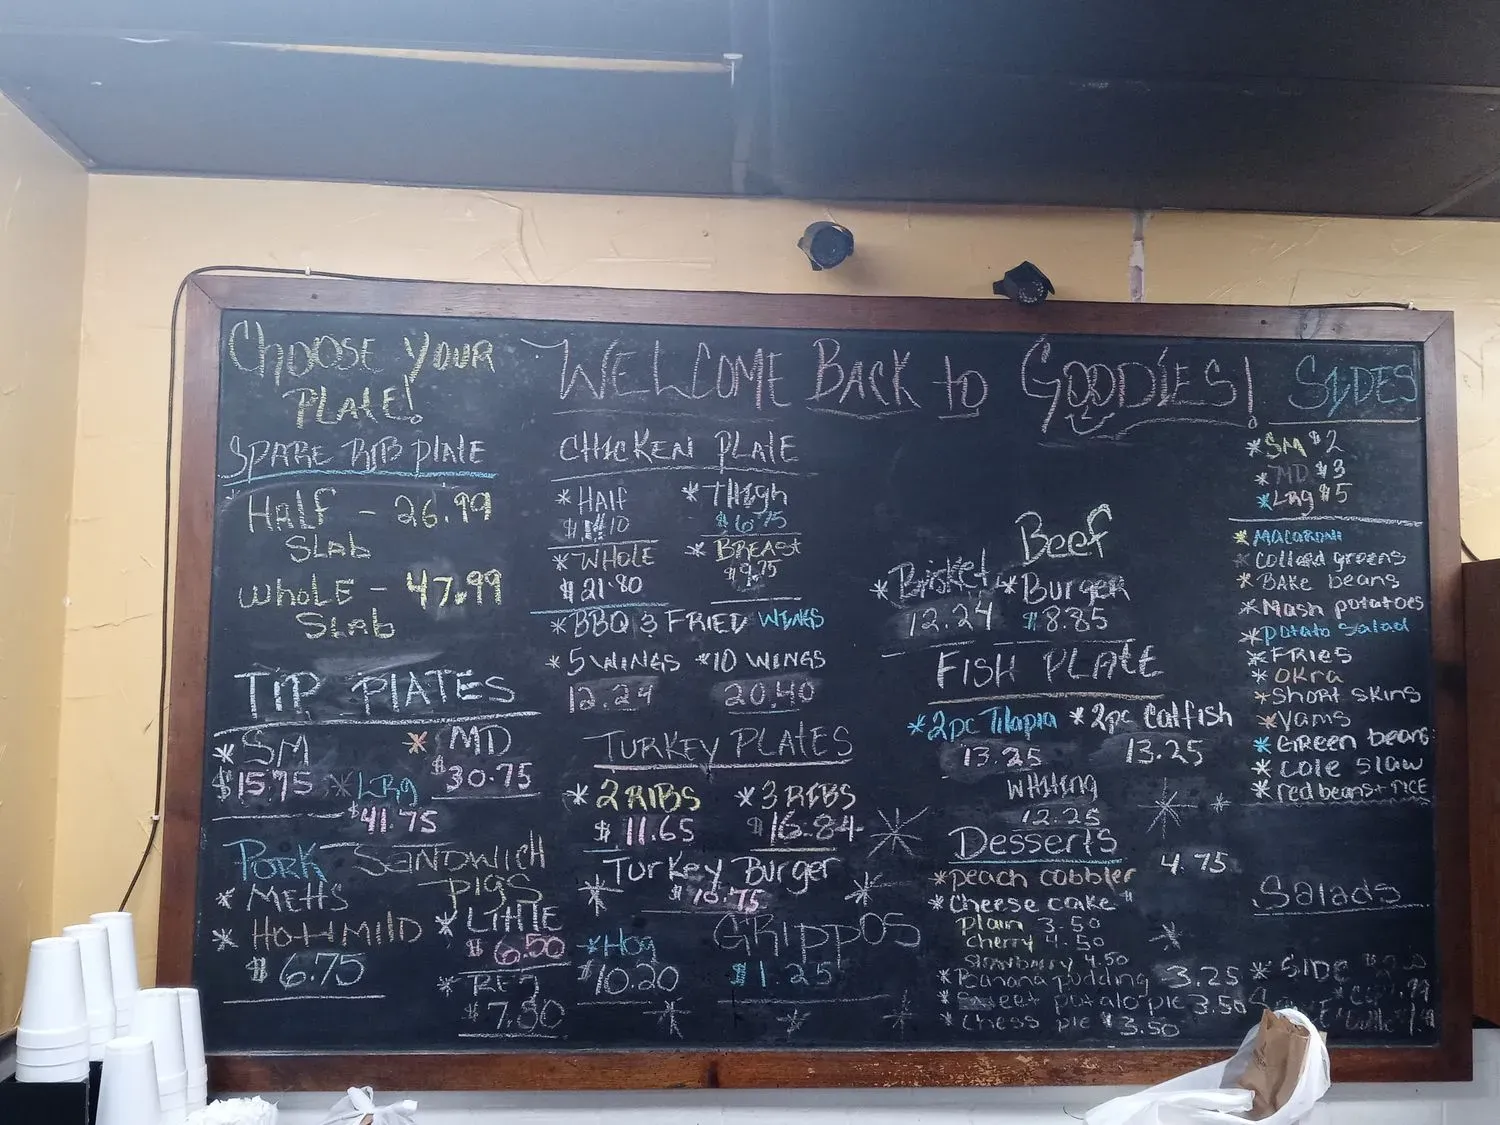 CHOOSE YOUR
PLATE!
SPARE RIB PLATE
HALF - 26.99
SLAB
WHOLE - 47.99
SLAB
TIP PLATES
* SM
$15.75
* MD
$30.75
* LRG
$41.75
PORK SANDWICH
* METTS
* HOT MILD
$6.75
PIGS
* LITTLE
$6.50
* REG
$7.50
* HOG
$10.20
WELCOME BACK to GOODIES!
CHICKEN PLATE
* HALF
* THIGH
$6.75
* WHOLE
$21.80
* BREAST
$9.75
* BBQ & FRIED WINGS
* 5 WINGS * 10 WINGS
12.24 20.40
TURKEY PLATES
* 2 RIBS * 3 RIBS
$11.65 $16.84
Turkey Burger
$10.75
GRIPPOS
$1.25
Beef
* Brisket * Burger
12.24 $8.85
FISH PLATE
* 2pc Tilapia * 2pc Catfish
13.25 13.25
Whiting
12.25
Desserts
* peach cobbler 4.75
* Cheese cake"
Plain 3.50
Cherry 4.50
Strawberry 4.50
* Banana pudding 3.25
* Sweet potato pie 3.50
* Chess pie $3.50
SIDES
* SM $2
* MD $3
* LRG $5
* MACARONI
* Collard greens
* BAKE beans
* Mash potatoes
* potato salad
* FRIES
* OKRA
* SHORT SKINS
* Yams
* GREEN beans
* cole slaw
* red beans + RICE
Salads
* SIDE